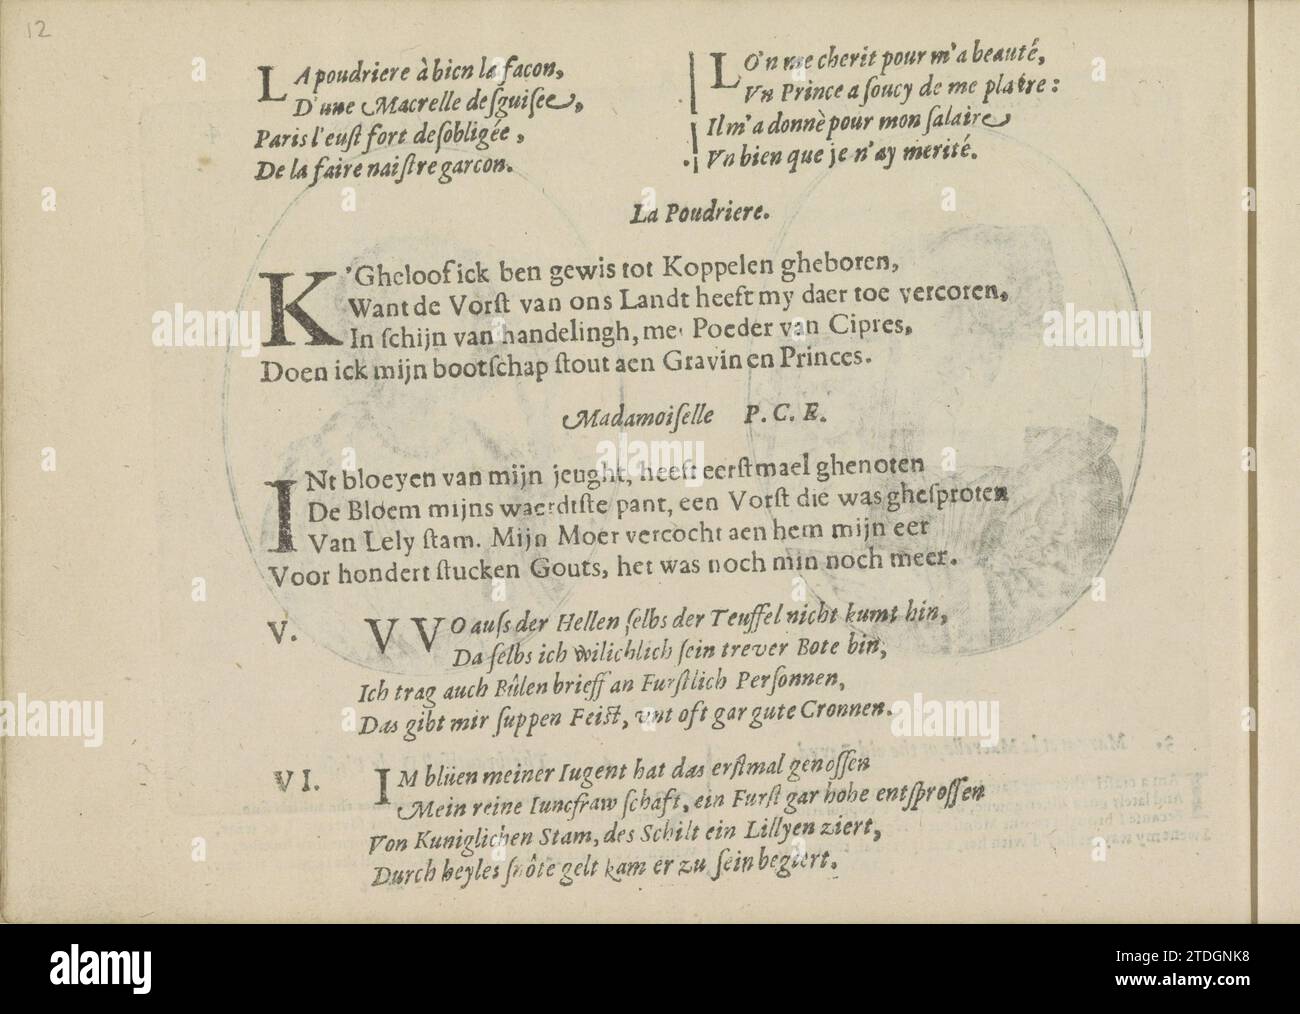 12
LA poudriere à bien la facon,
D'une Macrelle desguisee,
Paris l'euſt fort deſobligée,
De la faire naiſtre garcon.
LO'n me cherit pour m'a beauté,
Vn Prince a ſoucy de me plaire:
Il m'a donnè pour mon ſalaire
Vn bien que je n'ay merité.
La Poudriere.
K'Gheloof ick ben gewis tot Koppelen gheboren,
Want de Vorſt van ons Landt heeft my daer toe vercoren,
In ſchijn van handelingh, met Poeder van Cipres,
Doen ick mijn bootſchap ſtout aen Gravin en Princes.
Madamoiſelle P. C. E.
INt bloeyen van mijn jeught, heeft eerſtmael ghenoten
De Bloem mijns waerdtſte pant, een Vorſt die was gheſproten
Van Lely ſtam. Mijn Moer vercocht aen hem mijn eer
Voor hondert ſtucken Gouts, het was noch min noch meer.
V. VVO auſs der Hellen ſelbs der Teuffel nicht kumt hin,
Da ſelbs ich wilichlich ſein trever Bote bin,
Ich trag auch Bûlen brieff an Furſtlich Perſonnen,
Das gibt mir ſuppen Feiſt, vnt oft gar gute Cronnen.
VI. IM blüen meiner Iugent hat das erſtmal genoſſen
Mein reine Iuncfraw ſchaft, ein Furſt gar hohe entſproſſen
Von Kuniglichen Stam, des Schilt ein Lillyen ziert,
Durch heyles ſnôte gelt kam er zu ſein begiert.
alamy
Image ID: 2TDGNK8
www.alamy.com